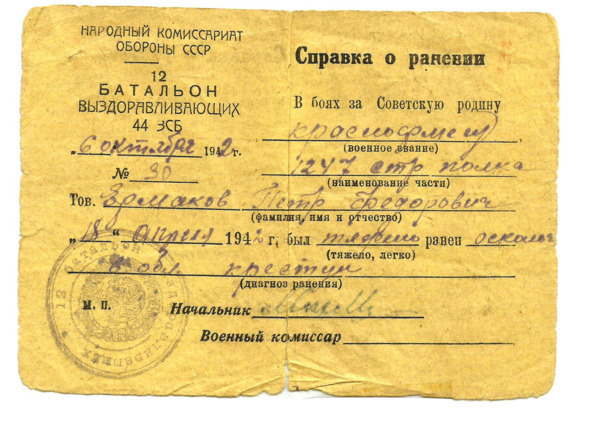 НАРОДНЫЙ КОМИССАРИАТ
ОБОРОНЫ СССР
12
БАТАЛЬОН
ВЫЗДОРАВЛИВАЮЩИХ
44 ЗСБ
6 октября 1942 г.
№ 30
Справка о ранении
В боях за Советскую родину
красноармеец
(военное звание)
1247 стр полка
(наименование части)
Тов. Ермаков Петр Федорович
(фамилия, имя и отчество)
„18" апреля 1942 г. был тяжело ранен осколк
(тяжело, легко)
в обл
(диагноз ранения)
М. П.
Начальник
Военный комиссар